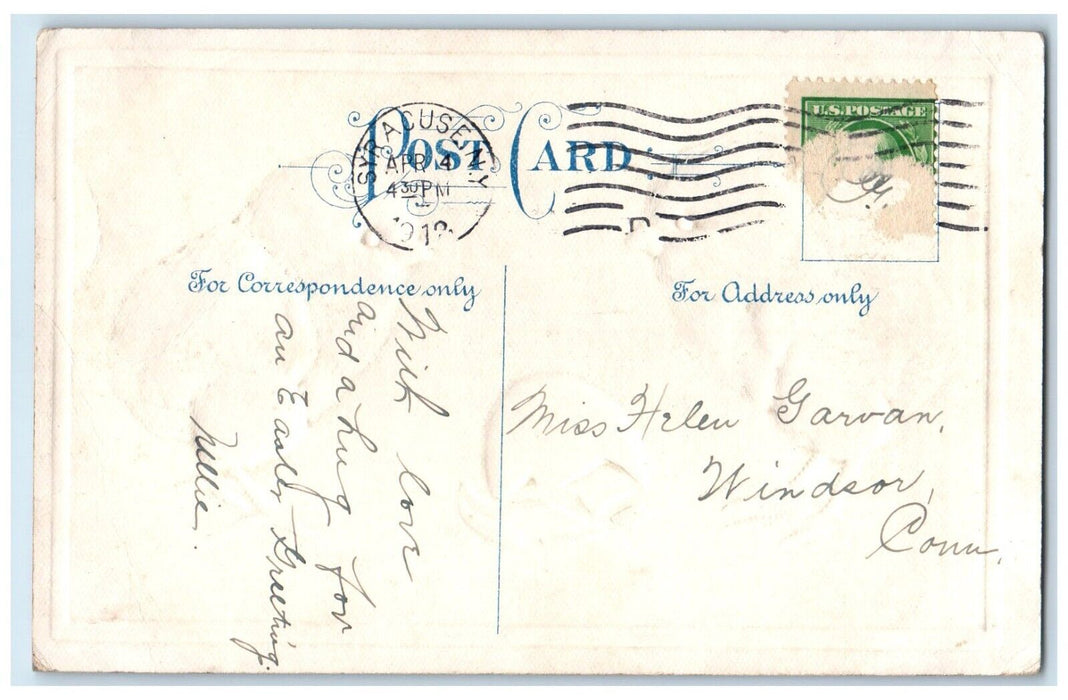 POST CARD
SYRACUSE, N.Y.
APR 4
4 30 PM
U.S. POSTAGE
For Correspondence only
For Address only
With love
and a hug for
an Easter Greeting.
Nellie.
Miss Helen Garvan,
Windsor,
Conn.